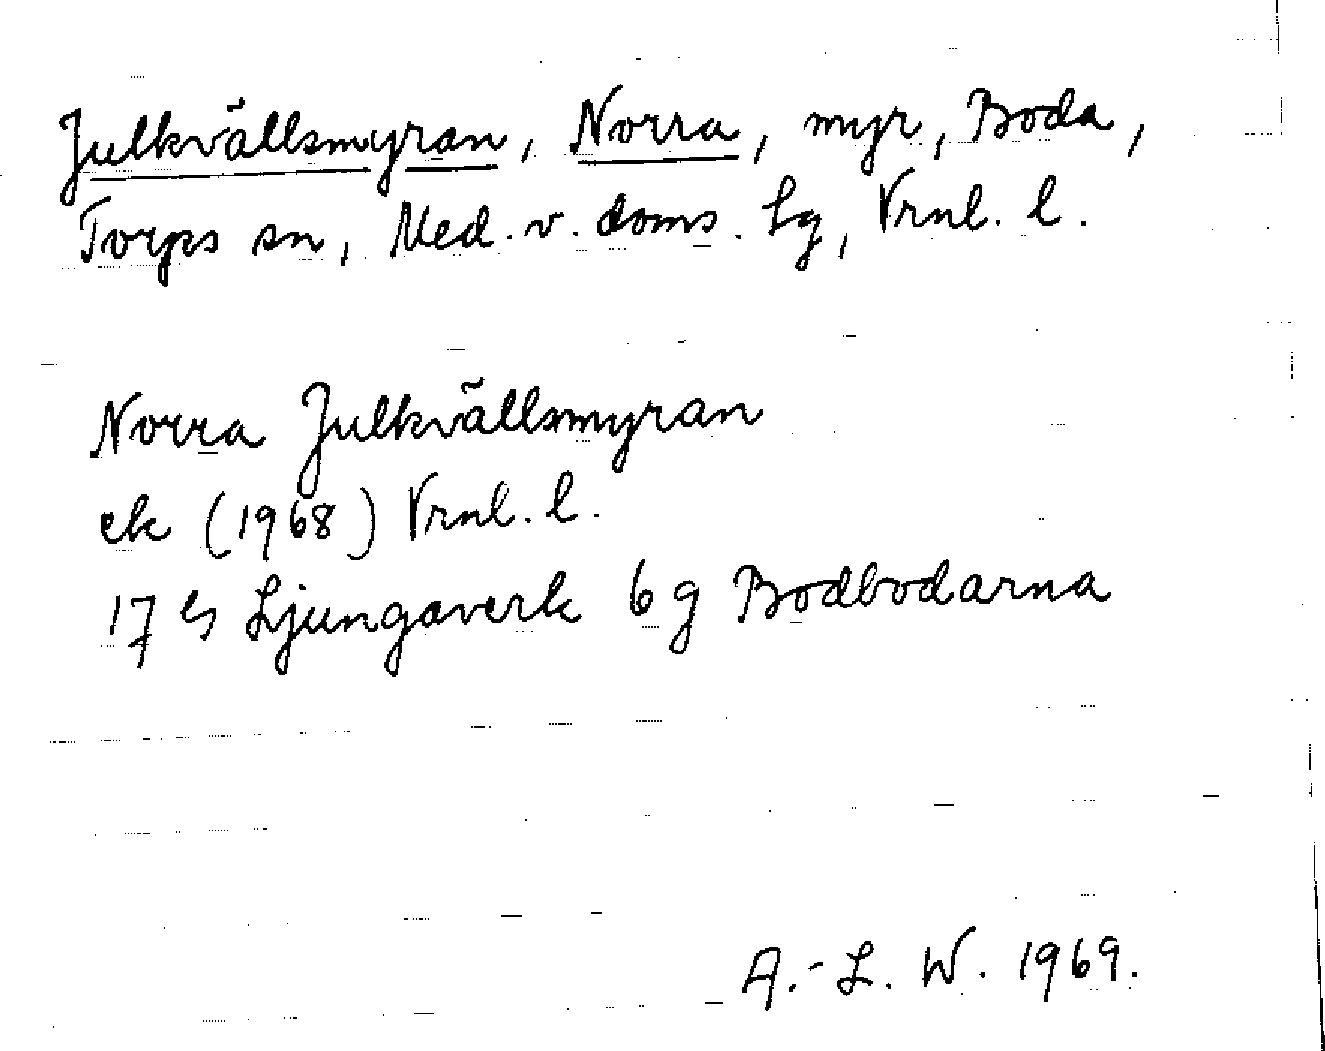 Julkvällsmyran, Norra, myr, Boda,
Torps sn, Med. v. doms. Lg, Vrnl. l.
Norra Julkvällsmyran
ek (1968) Vrnl. l.
17 G Ljungaverk 6 g Bodbodarna
A.-L. W. 1969.